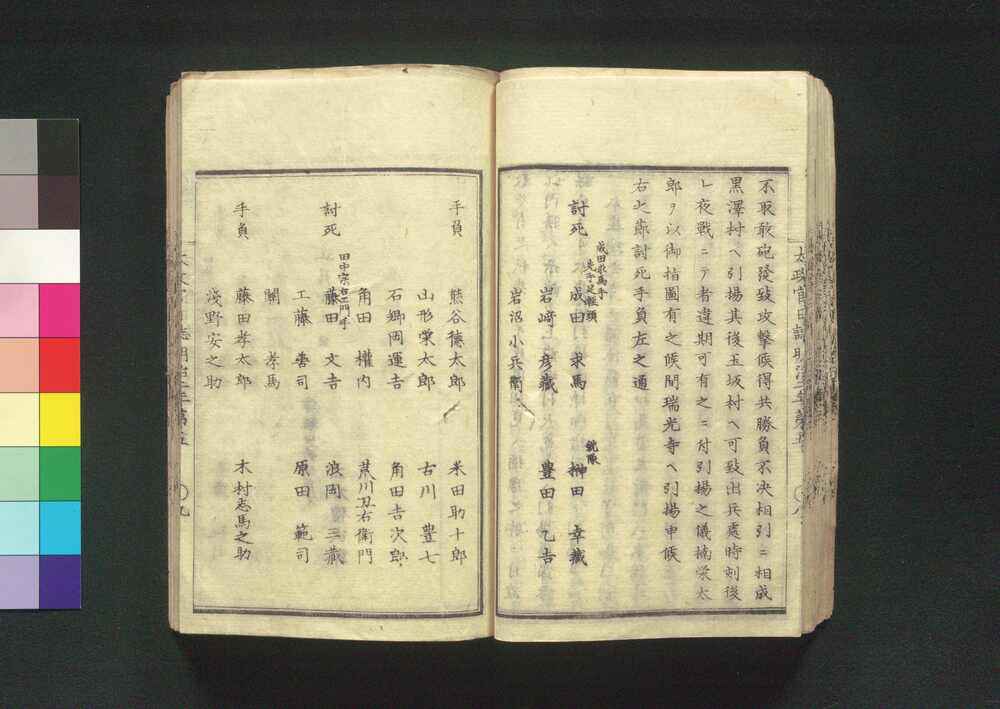 不取敢砲發致攻撃候得共勝負不决相引ニ相成
黒澤村ヘ引揚其後玉坂村ヘ可致出兵處時刻後
レ夜戰ニテ者違期可有之ニ付引揚之儀楠栄太
郎ヲ以御指圖有之候間瑞光寺ヘ引揚申候
右之節討死手負左之通
成田求馬手
先手足軽頭
銃隊
討死 成田 求馬 榊田 幸藏
岩﨑 彦藏 豊田 乙吉
岩沼小兵衛
手負 熊谷德太郎 米田助十郎
山形栄太郎 古川 豊七
石郷岡運吉 角田吉次郎
角田 權内 荒川丑右衛門
田中宗右エ門手
討死 藤田 文吉 浪岡 三藏
工藤 司 原田 範司
關 孝馬
手負 藤田孝太郎 木村志馬之助
淺野安之助
太政官日誌明治二年第五 〇八
志明治二年第五 〇九